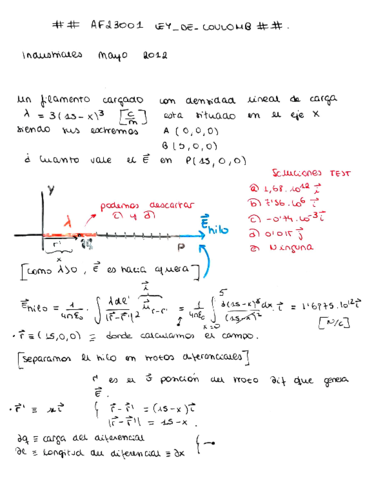 ## AF23001 LEY_DE_COULOMB ##.
Industriales Mayo 2012
Un filamento cargado con densidad lineal de carga
λ = 3(15-x)³ [C/m] esta situado en el eje X
siendo sus extremos A (0,0,0)
B (5,0,0)
¿ Cuanto vale el E⃗ en P(15,0,0)
Soluciones TEST
a) 1,68·10¹² i⃗
b) 7'56·10⁶ i⃗
c) -0'74·10⁻³ i⃗
d) 0'015 j⃗
e) Ninguna
Y
podemos descartar
c) y d)
λ
r'
x
P
E⃗ hilo
[como λ>0, E⃗ es hacia afuera]
E⃗hilo = 1/4πε₀ · ∫ λdl'/|r⃗-r⃗'|² u⃗ r-r' = 1/4πε₀ ∫ₓ₌₀⁵ 3(15-x)³/(15-x)² dx i⃗ = 1'6875·10¹² i⃗
[N/C]
· r⃗ ≡ (15,0,0) ≡ donde calculamos el campo.
[separamos el hilo en trozos diferenciales]
r' es el v⃗ posición del trozo dif que genera
E⃗.
· r⃗' ≡ x i⃗ { r⃗ - r⃗' = (15-x) i⃗
|r⃗-r⃗'| = 15-x.
dq ≡ carga del diferencial
dl ≡ longitud del diferencial ≡ dx